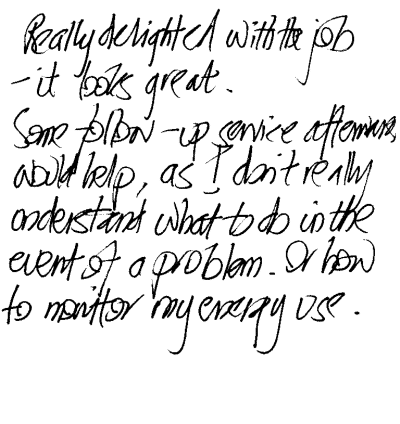 Really delighted with the job
- it looks great.
Some follow-up service afterwards
would help, as I don't really
understand what to do in the
event of a problem. Or how
to monitor my energy use.